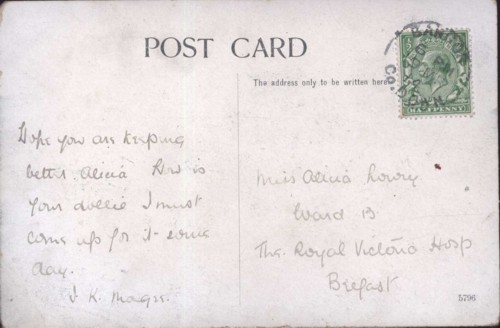 POST CARD
The address only to be written here
BANGOR
CO. DOWN
Hope you are keeping
better Alicia How is
your dollie I must
come up for it some
day.
J. K. Magee.
Miss Alicia Lowry
Ward B
The Royal Victoria Hosp
Belfast
5796